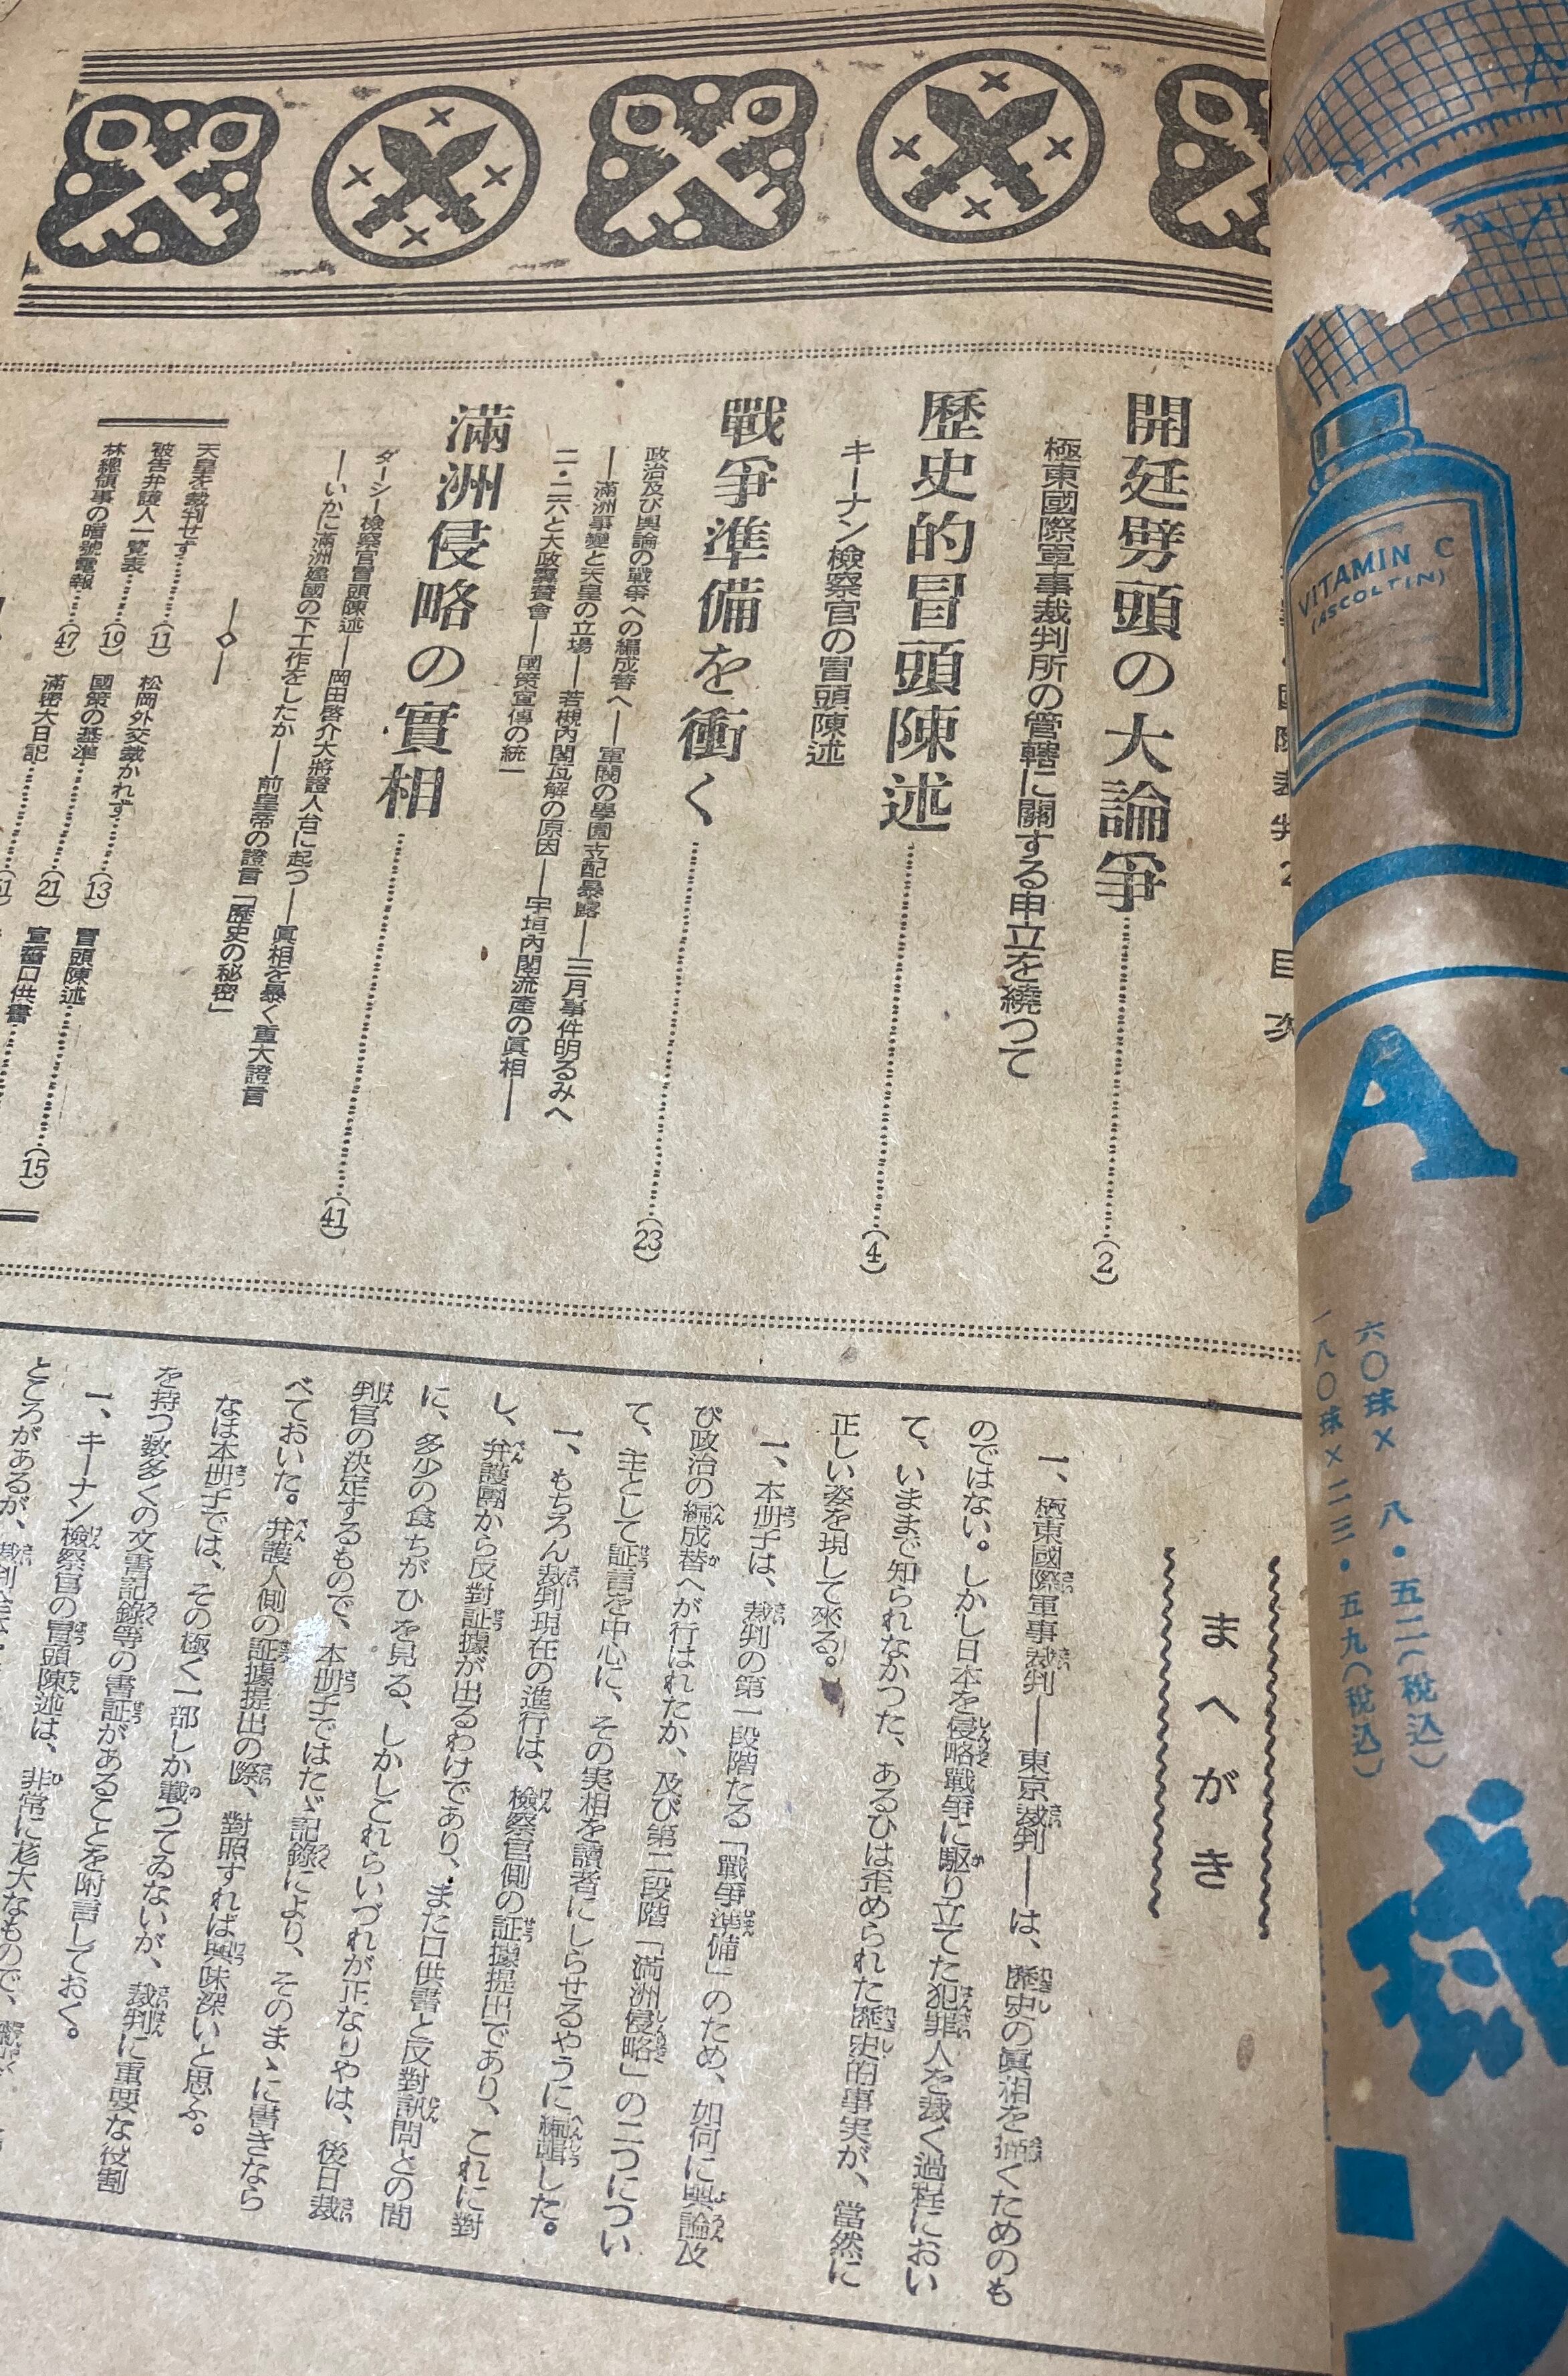 目次
開廷劈頭の大論爭……(2)
極東國際軍事裁判所の管轄に關する申立を繞つて
歷史的冒頭陳述……(4)
キーナン檢察官の冒頭陳述
戰爭準備を衝く……(23)
政治及び輿論の戰爭への編成替へ——軍閥の學園支配暴露——三月事件明るみへ
——滿洲事變と天皇の立場——若槻內閣瓦解の原因——宇垣內閣流產の眞相——
二・二六と大政翼贊會——國策宣傳の統一
滿洲侵略の實相……(41)
ダーシー檢察官冒頭陳述——岡田啓介大將證人台に起つ——眞相を暴く重大證言
——いかに滿洲建國の下工作をしたか——前皇帝の證言「歷史の秘密」
天皇を裁判せず……(11)
被告弁護人一覽表……(19)
林總領事の暗號電報……(47)
松岡外交裁かれず……(13)
國策の基準……(21)
滿密大日記
冒頭陳述……(15)
宣誓口供書
まへがき
一、極東國際軍事裁判——東京裁判——は、歷史の眞相を描くためのも
のではない。しかし日本を侵略戰爭に駆り立てた犯罪人を裁く過程におい
て、いままで知られなかつた、あるひは歪められた歷史的事実が、當然に
正しい姿を現して來る。
一、本册子は、裁判の第一段階たる「戰爭準備」のため、如何に輿論及
び政治の編成替へが行はれたか、及び第二段階「満洲侵略」の二つについ
て、主として証言を中心に、その実相を讀者にしらせるやうに編輯した。
一、もちろん裁判現在の進行は、檢察官側の証據提出であり、これに對
し、弁護團から反對証據が出るわけであり、また口供書と反對訊問との間
に、多少の食ちがひを見る、しかしこれらいづれが正なりやは、後日裁
判官の決定するもので、本册子ではたゞ記錄により、そのまゝに書きなら
べておいた。弁護人側の証據提出の際、對照すれば興味深いと思ふ。
なほ本册子では、その極く一部しか載つてゐないが、裁判に重要な役割
を持つ数多くの文書記錄等の書証があることを附言しておく。
一、キーナン檢察官の冒頭陳述は、非常に尨大なもので、
ところがあるが、
VITAMIN C
(ASCOLTIN)
A
六〇球× 八・五二(税込)
一八〇球×二三・五九(税込)